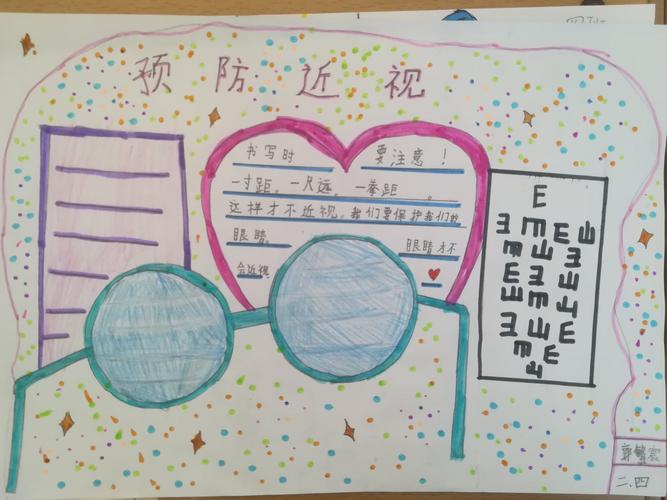 预防近视
书写时 要注意！
一寸距。一尺远。一拳距 。
这样才不近视。我们要保护我们的
眼睛。 眼睛才不
会近视
E
二.四